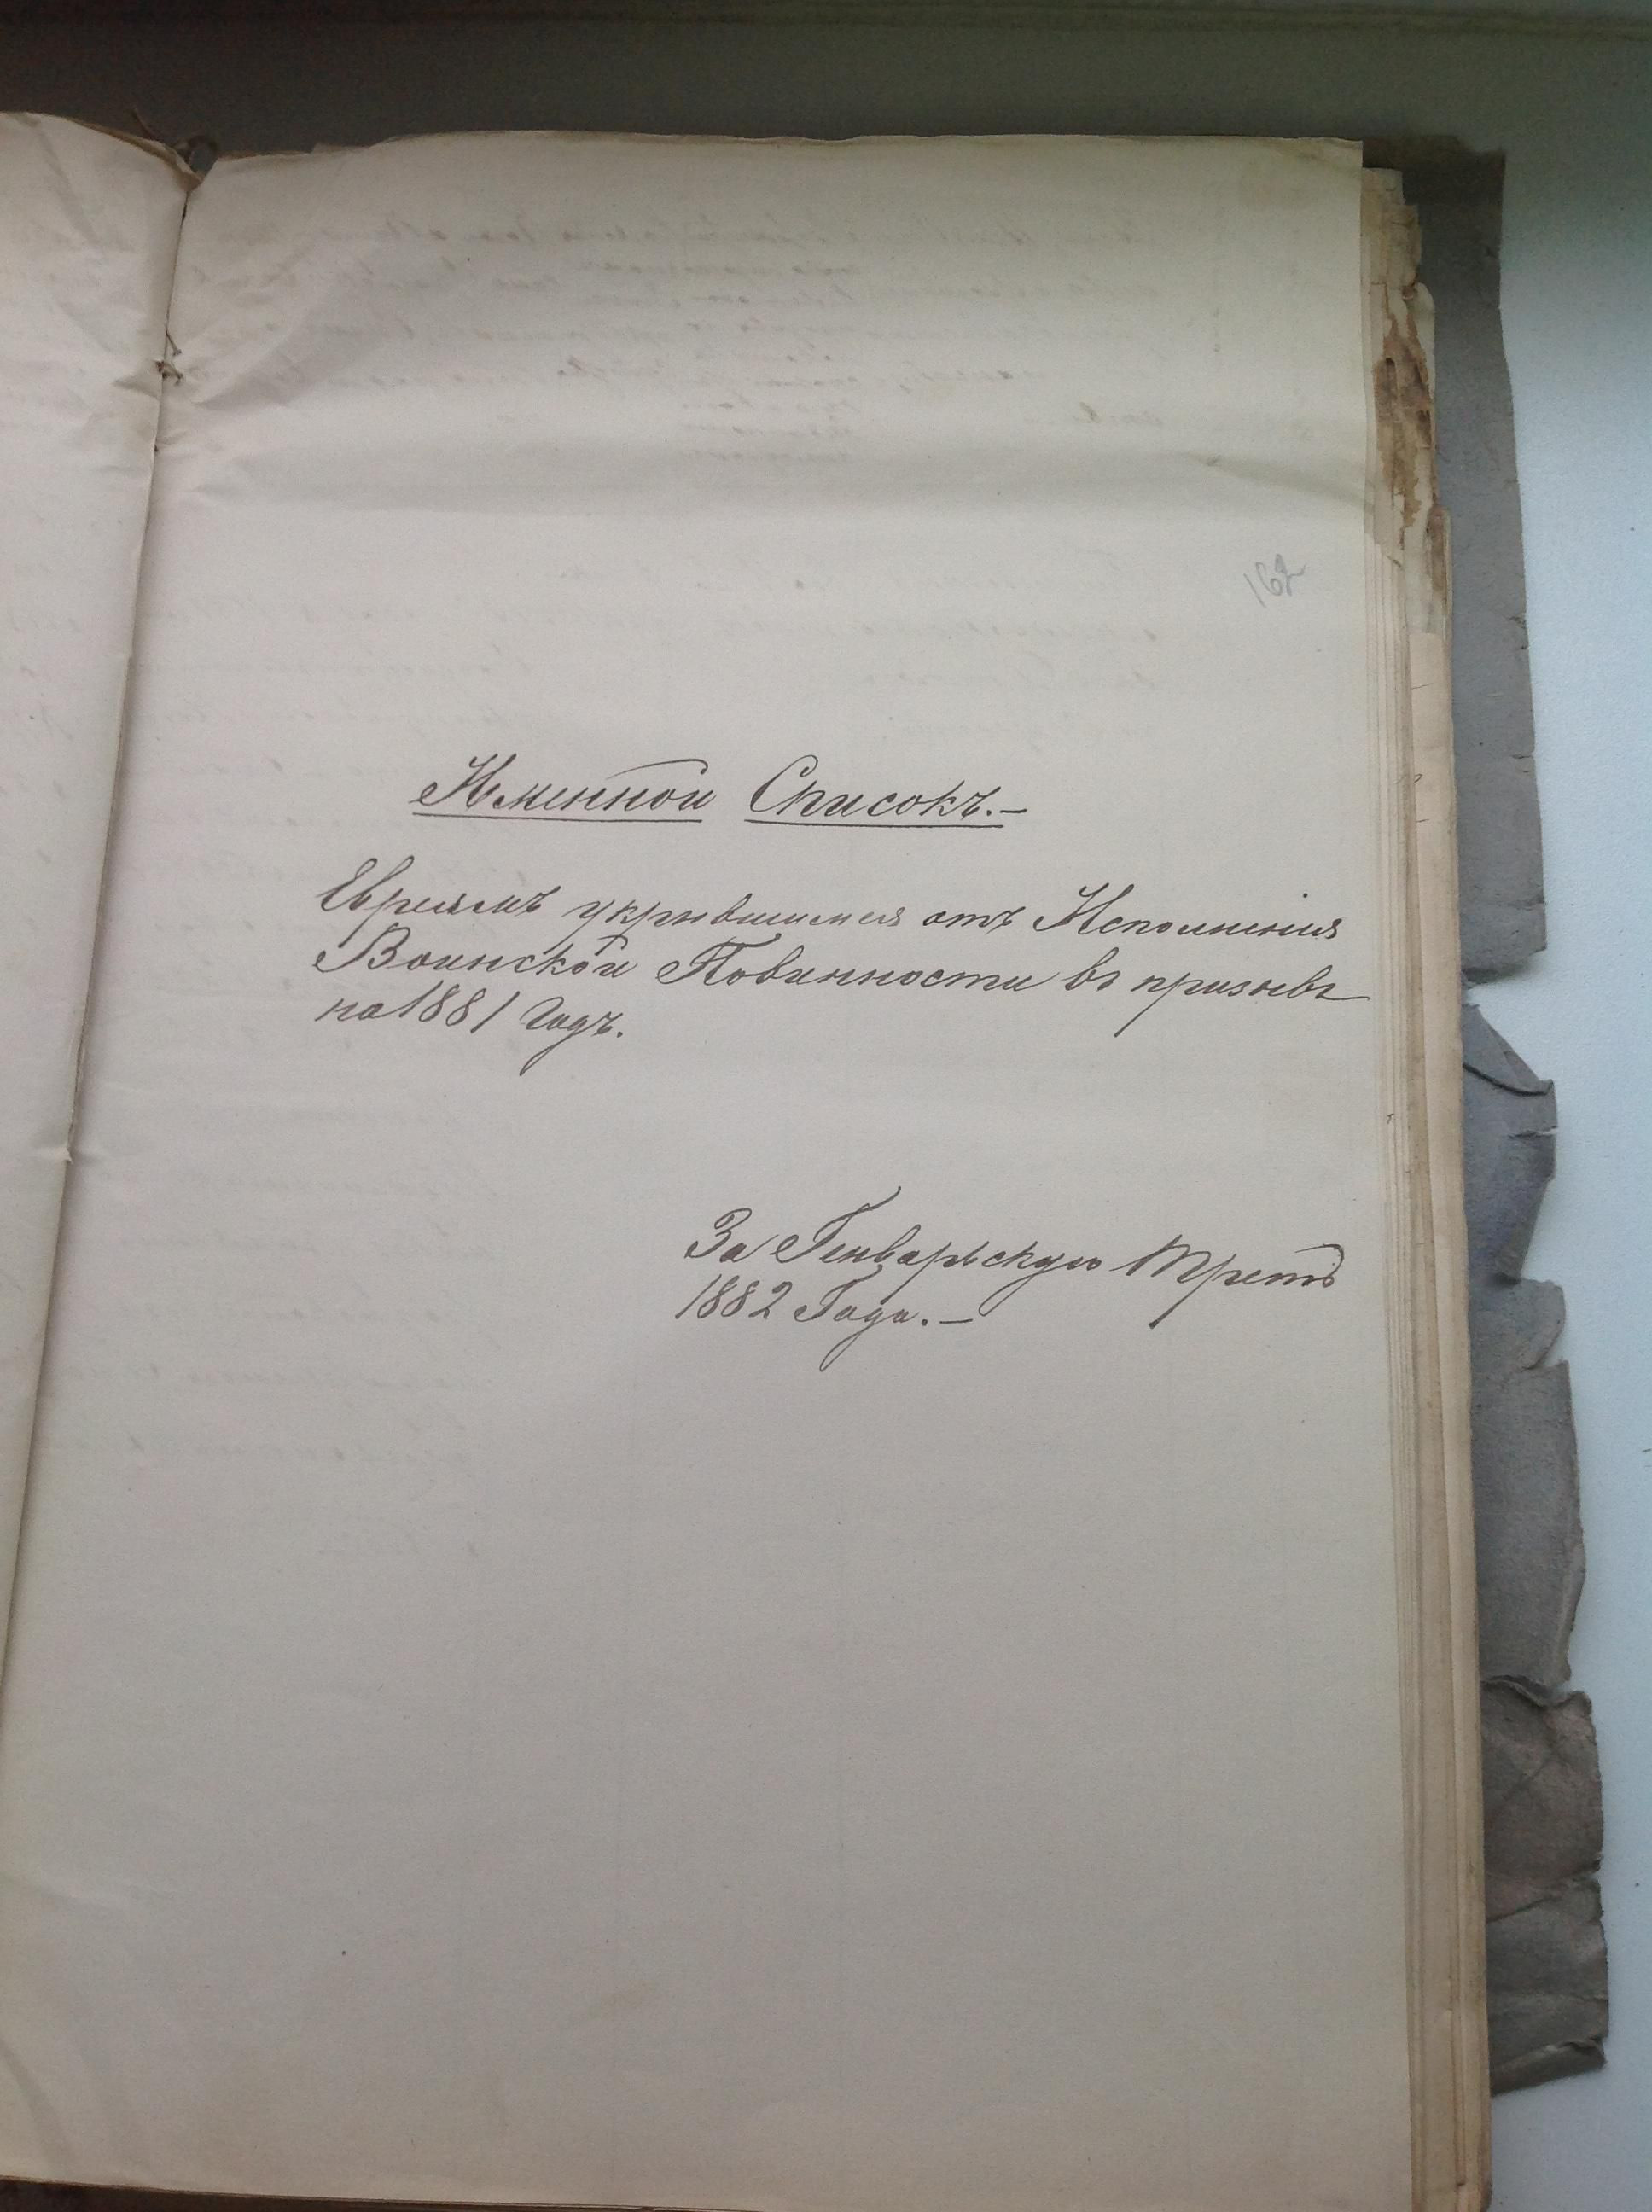 162
Именной Списокъ.—
Евреямъ укрывшимся отъ Исполнения
Воинской Повинности въ призывъ
на 1881 Годъ.
За Генварьскую Треть
1882 Года.—